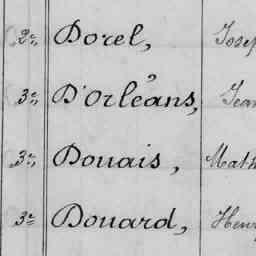 2e, Dorel, Josep
3e, D'Orléans, Jean
3e, Douais, Math
3e Douard, Henr